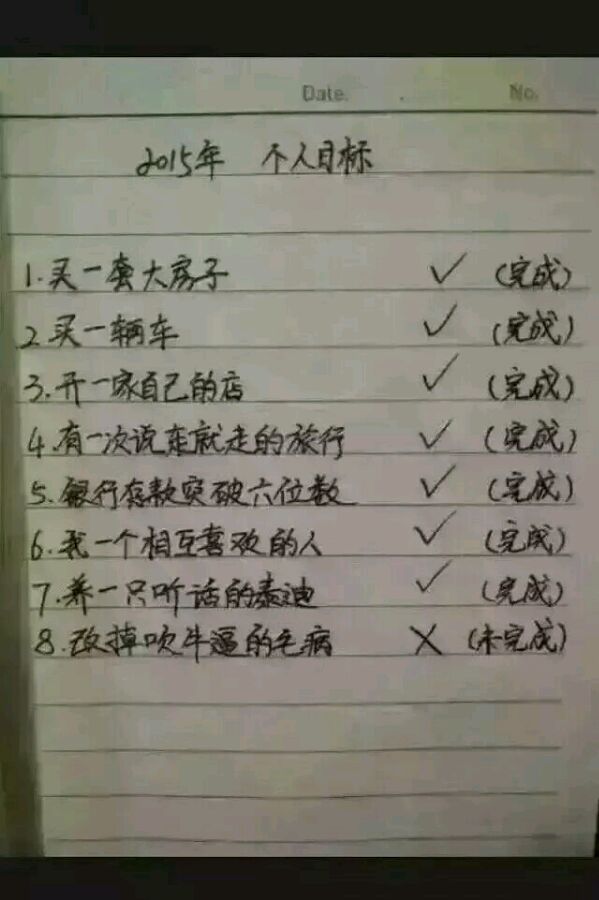 Date. No.
2015年 个人目标
1.买一套大房子 ✓ (完成)
2.买一辆车 ✓ (完成)
3.开一家自己的店 ✓ (完成)
4.有一次说走就走的旅行 ✓ (完成)
5.银行存款突破六位数 ✓ (完成)
6.找一个相互喜欢的人 ✓ (完成)
7.养一只听话的泰迪 ✓ (完成)
8.改掉吹牛逼的毛病 ✗ (未完成)